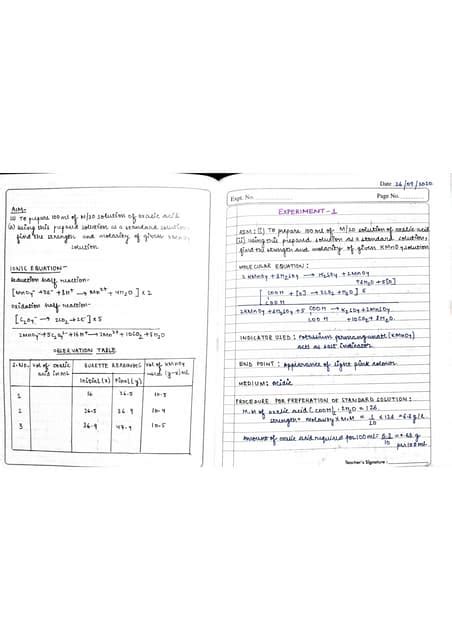 AIM-
(i) To prepare 100 ml of M/20 solution of oxalic acid
(ii) Using this prepared solution as a standard solution,
find the strength and molarity of given KMnO4
solution
IONIC EQUATION-
Reduction half reaction-
[MnO4⁻ + 5e⁻ + 8H⁺ → Mn²⁺ + 4H2O] × 2
Oxidation half reaction-
[C2O4²⁻ → 2CO2 + 2e⁻] × 5
2MnO4⁻ + 5C2O4²⁻ + 16H⁺ → 2Mn²⁺ + 10CO2 + 8H2O
OBSERVATION TABLE
S.No. Vol of oxalic BURETTE READINGS Vol of KMnO4
acid in mL used (y-x) mL
Initial (x) Final (y)
1 16 26.5 10.5
2 26.5 36.9 10.4
3 36.9 10.5
Date 26/09/2020
Expt. No. Page No.
EXPERIMENT-1
AIM: (i) To prepare 100 ml of M/20 solution of oxalic acid
(ii) Using this prepared solution as a standard solution,
find the strength and molarity of given KMnO4 solution
MOLECULAR EQUATION:
2KMnO4 + 3H2SO4 → K2SO4 + 2MnSO4
+ 3H2O + 5[O]
[COOH + [O] → 2CO2 + H2O] 5
COOH
2KMnO4 + 3H2SO4 + 5 COOH → K2SO4 + 2MnSO4
COOH + 10CO2 + 8H2O.
INDICATOR USED: Potassium permanganate (KMnO4)
acts as self indicator
END POINT: Appearance of light pink colour
MEDIUM: Acidic
PROCEDURE FOR PREPERATION OF STANDARD SOLUTION:
M.M of oxalic acid (COOH)2.2H2O = 126
Strength = molarity × M.M = 1/20 × 126 = 6.3 g/L
Amount of oxalic acid required for 100 ml: 6.3/10 = 0.63 g
per 100 ml
Teacher's Signature :